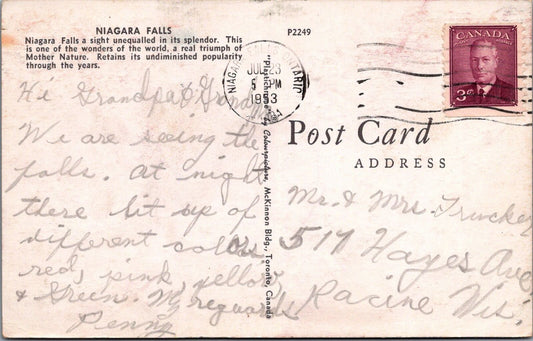 NIAGARA FALLS
Niagara Falls a sight unequalled in its splendor. This
is one of the wonders of the world, a real triumph of
Mother Nature. Retains its undiminished popularity
through the years.
P2249
CANADA
3
NIAGARA ONTARIO
JUL 23
5 PM
1953
Post Card
ADDRESS
"Plastichrome" by Colourpicture, McKinnon Bldg., Toronto, Canada
Hi Grandpa &
We are seeing the
falls. At night
there lit up of
different colors
red, pink, yellow,
& green. My regards
Penny
Mr. & Mrs. Trucker
517 Hayes Ave
Racine Wis.